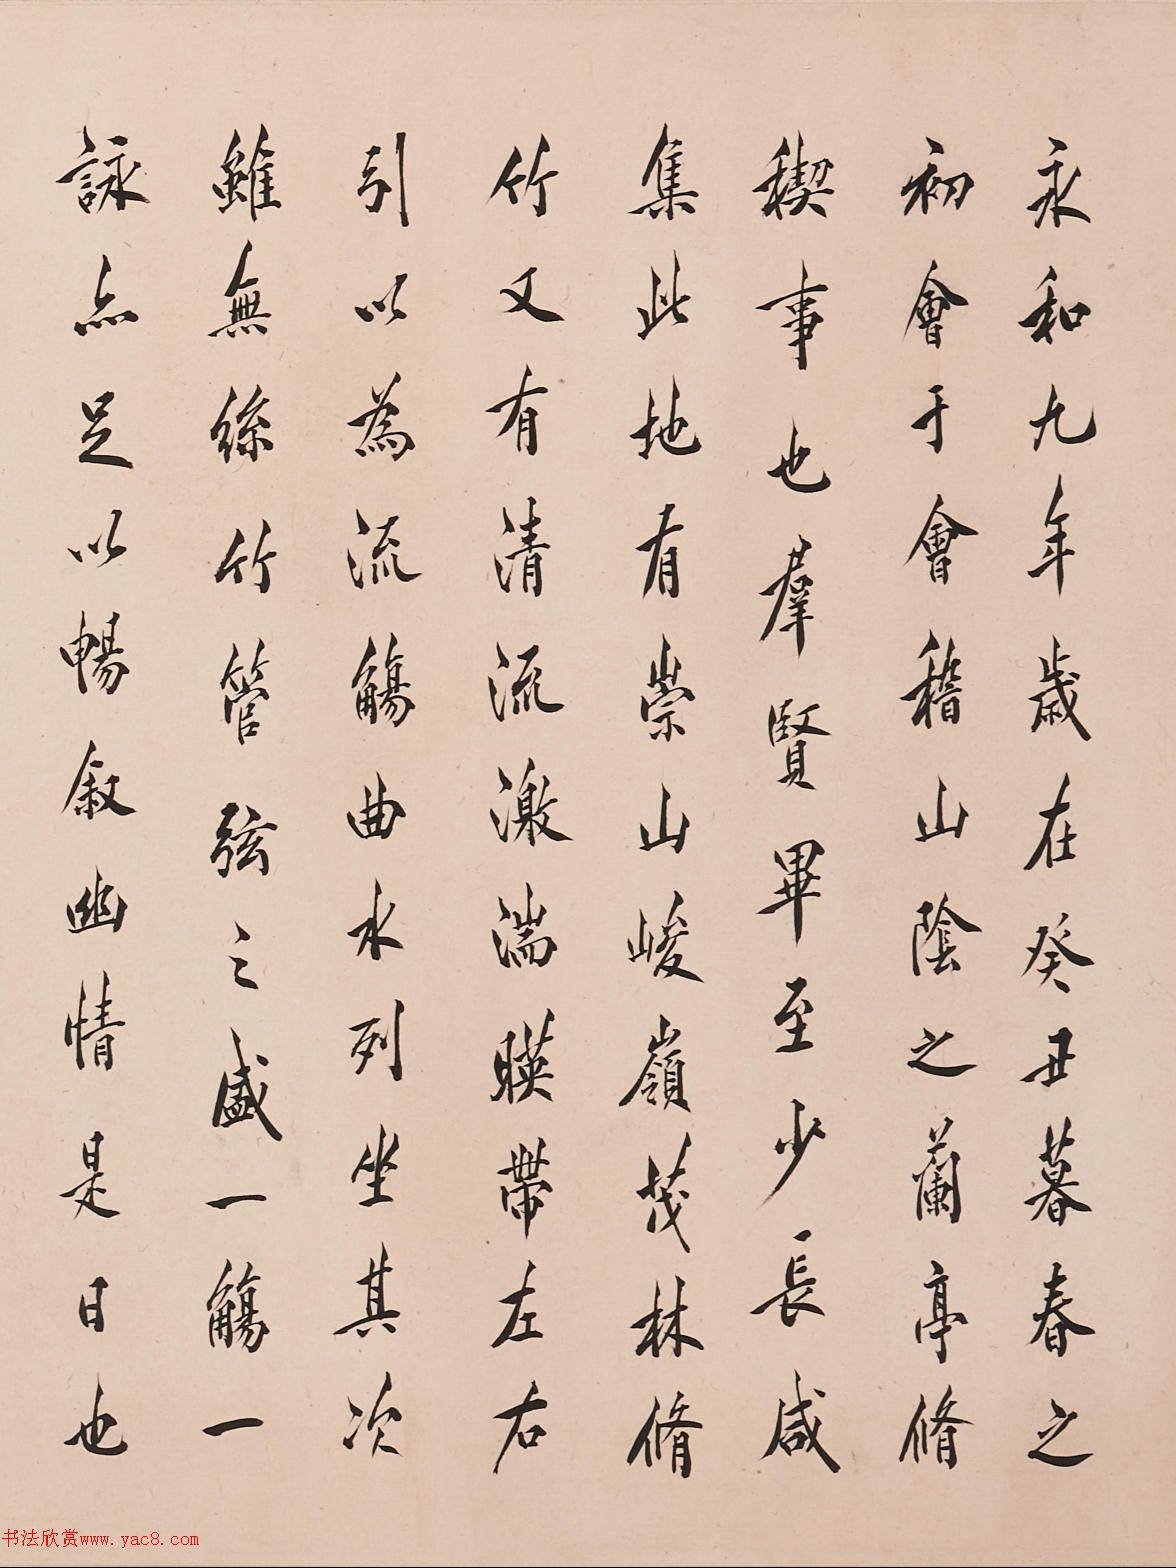 永和九年歲在癸丑暮春之
初會于會稽山陰之蘭亭脩
稧事也羣賢畢至少長咸
集此地有崇山峻嶺茂林脩
竹又有清流激湍暎帶左右
引以為流觴曲水列坐其次
雖無絲竹管弦之盛一觴一
詠亦足以暢叙幽情是日也
书法欣赏www.yac8.com